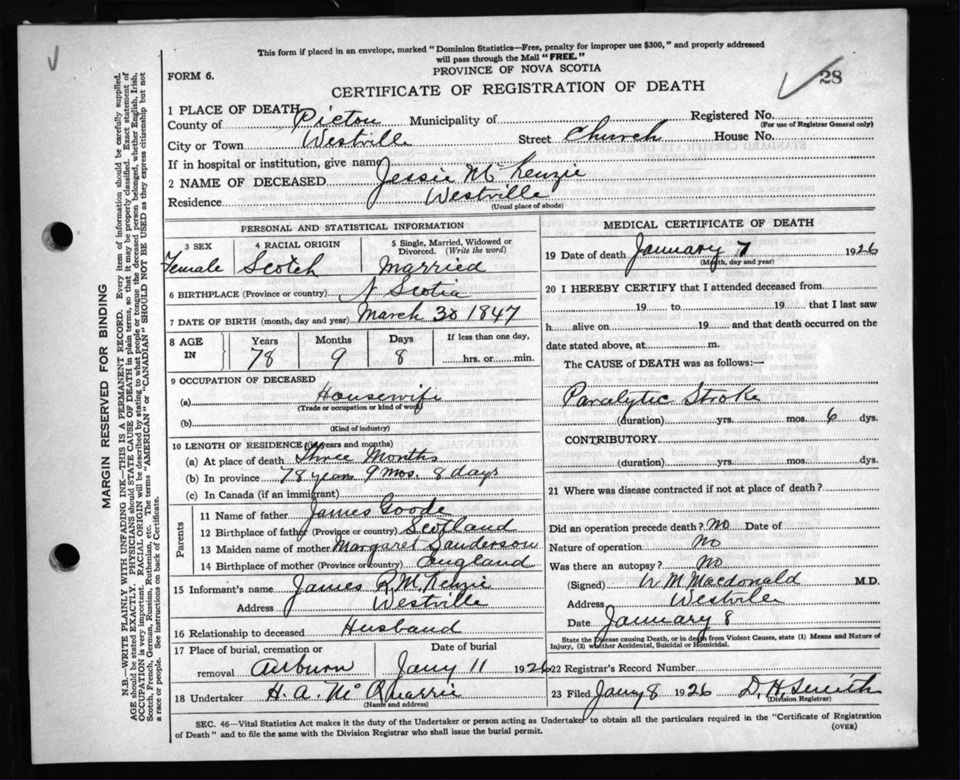 This form if placed in an envelope, marked "Dominion Statistics—Free, penalty for improper use $300," and properly addressed
will pass through the Mail "FREE."
PROVINCE OF NOVA SCOTIA
FORM 6.
CERTIFICATE OF REGISTRATION OF DEATH
28
1 PLACE OF DEATH
County of Pictou Municipality of Registered No.
(For use of Registrar General only)
City or Town Westville Street Church House No.
If in hospital or institution, give name
2 NAME OF DECEASED Jessie McKenzie
Residence Westville
(Usual place of abode)
PERSONAL AND STATISTICAL INFORMATION
3 SEX 4 RACIAL ORIGIN 5 Single, Married, Widowed or
Divorced. (Write the word)
Female Scotch Married
6 BIRTHPLACE (Province or country) N Scotia
7 DATE OF BIRTH (month, day and year) March 30 1847
8 AGE IN Years Months Days If less than one day,
78 9 8 hrs. or min.
9 OCCUPATION OF DECEASED
(a) Housewife
(Trade or occupation or kind of work)
(b)
(Kind of industry)
10 LENGTH OF RESIDENCE (in years and months)
(a) At place of death Three Months
(b) In province 78 years 9 mos. 8 days
(c) In Canada (if an immigrant)
Parents
11 Name of father James Goode
12 Birthplace of father (Province or country) Scotland
13 Maiden name of mother Margaret Sanderson
14 Birthplace of mother (Province or country) England
15 Informant's name James R. McKenzie
Address Westville
16 Relationship to deceased Husband
17 Place of burial, cremation or removal Auburn Date of burial Jany 11 1926
18 Undertaker H. A. McQuarrie
(Name and address)
MEDICAL CERTIFICATE OF DEATH
19 Date of death January 7 1926
(Month, day and year)
20 I HEREBY CERTIFY that I attended deceased from
19 to 19 that I last saw
h alive on 19 and that death occurred on the
date stated above, at m.
The CAUSE of DEATH was as follows:—
Paralytic Stroke
(duration) yrs. mos. 6 dys.
CONTRIBUTORY
(duration) yrs. mos. dys.
21 Where was disease contracted if not at place of death?
Did an operation precede death? No Date of
Nature of operation No
Was there an autopsy? No
(Signed) W M Macdonald M.D.
Address Westville
Date January 8
State the Disease causing Death, or in death from Violent Causes, state (1) Means and Nature of
Injury, (2) whether Accidental, Suicidal or Homicidal.
22 Registrar's Record Number
23 Filed Jany 8 1926 D. H. Smith
(Division Registrar)
SEC. 46—Vital Statistics Act makes it the duty of the Undertaker or person acting as Undertaker to obtain all the particulars required in the "Certificate of Registration
of Death" and to file the same with the Division Registrar who shall issue the burial permit.
(OVER)
MARGIN RESERVED FOR BINDING
N.B.—WRITE PLAINLY WITH UNFADING INK—THIS IS A PERMANENT RECORD. Every item of information should be carefully supplied.
AGE should be stated EXACTLY. PHYSICIANS should STATE CAUSE OF DEATH in plain terms, so that it may be properly classified. Exact statement of
OCCUPATION is very important. RACIAL ORIGIN will be described by stating to what people or tongue the deceased person belonged, whether English, Irish,
Scotch, French, German, Russian, Ruthenian, etc. The terms "AMERICAN" or "CANADIAN" SHOULD NOT BE USED as they express citizenship but not
a race or people. See instructions on back of Certificate.